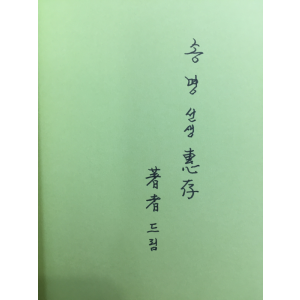 송명 선생 惠存
著者 드림